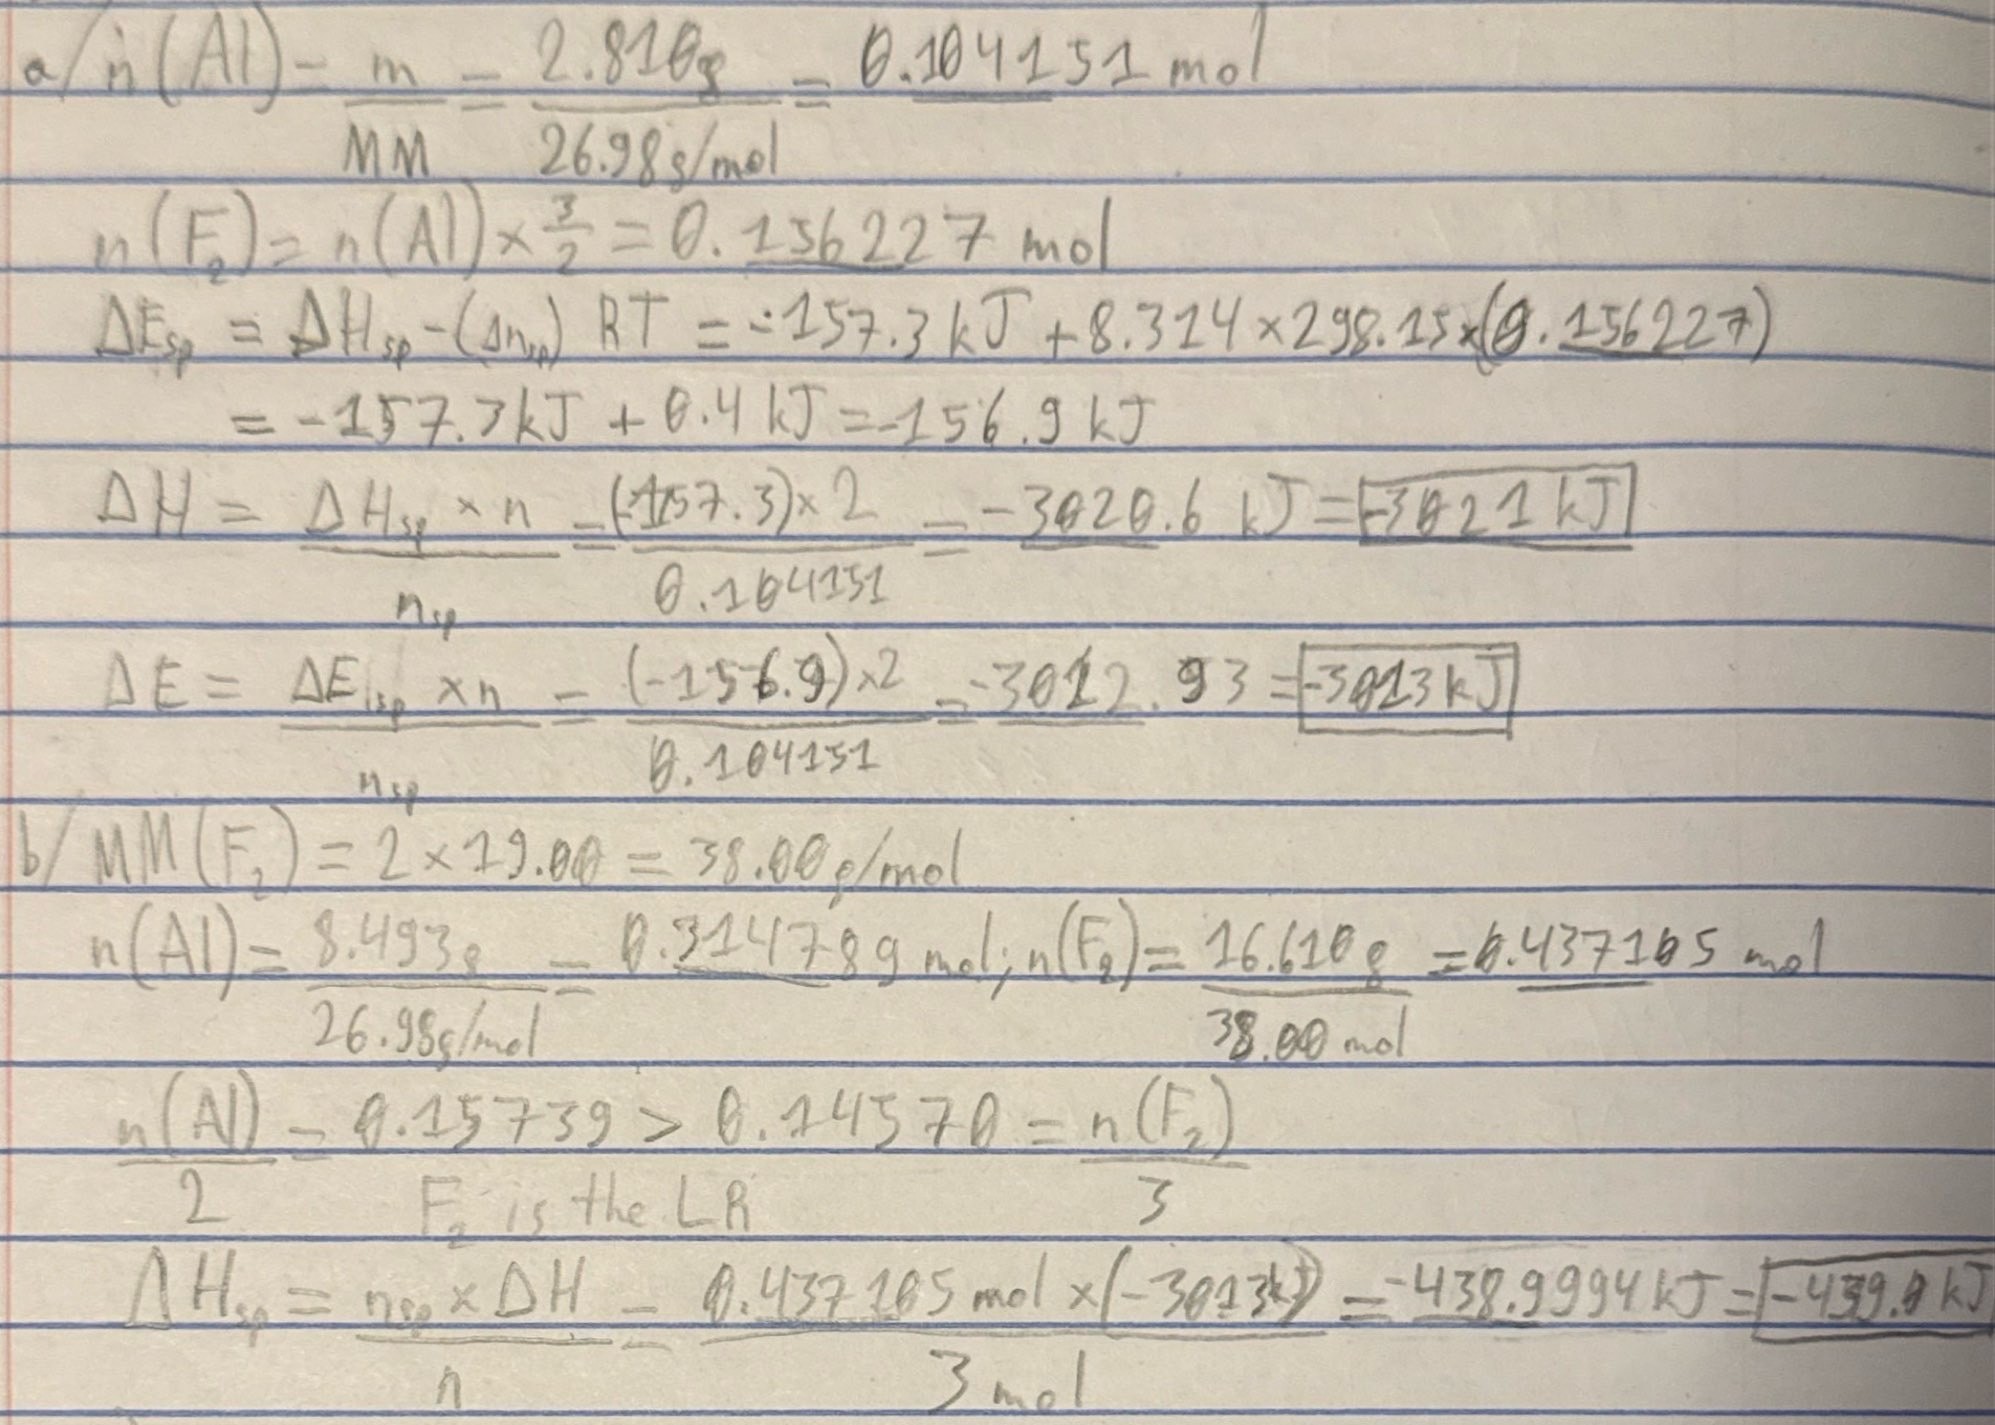 a/ n(Al) = m/MM = 2.810g/26.98g/mol = 0.104151 mol
n(F₂) = n(Al) × 3/2 = 0.156227 mol
ΔE_sp = ΔH_sp - (Δn_sp) RT = -157.3 kJ + 8.314 × 298.15 × (0.156227)
= -157.3 kJ + 0.4 kJ = -156.9 kJ
ΔH = ΔH_sp × n/n_sp = (-157.3) × 2/0.104151 = -3020.6 kJ = -3021 kJ
ΔE = ΔE_sp × n/n_sp = (-156.9) × 2/0.104151 = -3012.93 = -3013 kJ
b/ MM(F₂) = 2 × 19.00 = 38.00 g/mol
n(Al) = 8.493g/26.98g/mol = 0.314789 mol; n(F₂) = 16.610g/38.00 mol = 0.437105 mol
n(Al)/2 = 0.15739 > 0.14570 = n(F₂)/3
F₂ is the LR
ΔH_sp = n_sp × ΔH/n = 0.437105 mol × (-3013kJ)/3 mol = -438.9994 kJ = -439.0 kJ